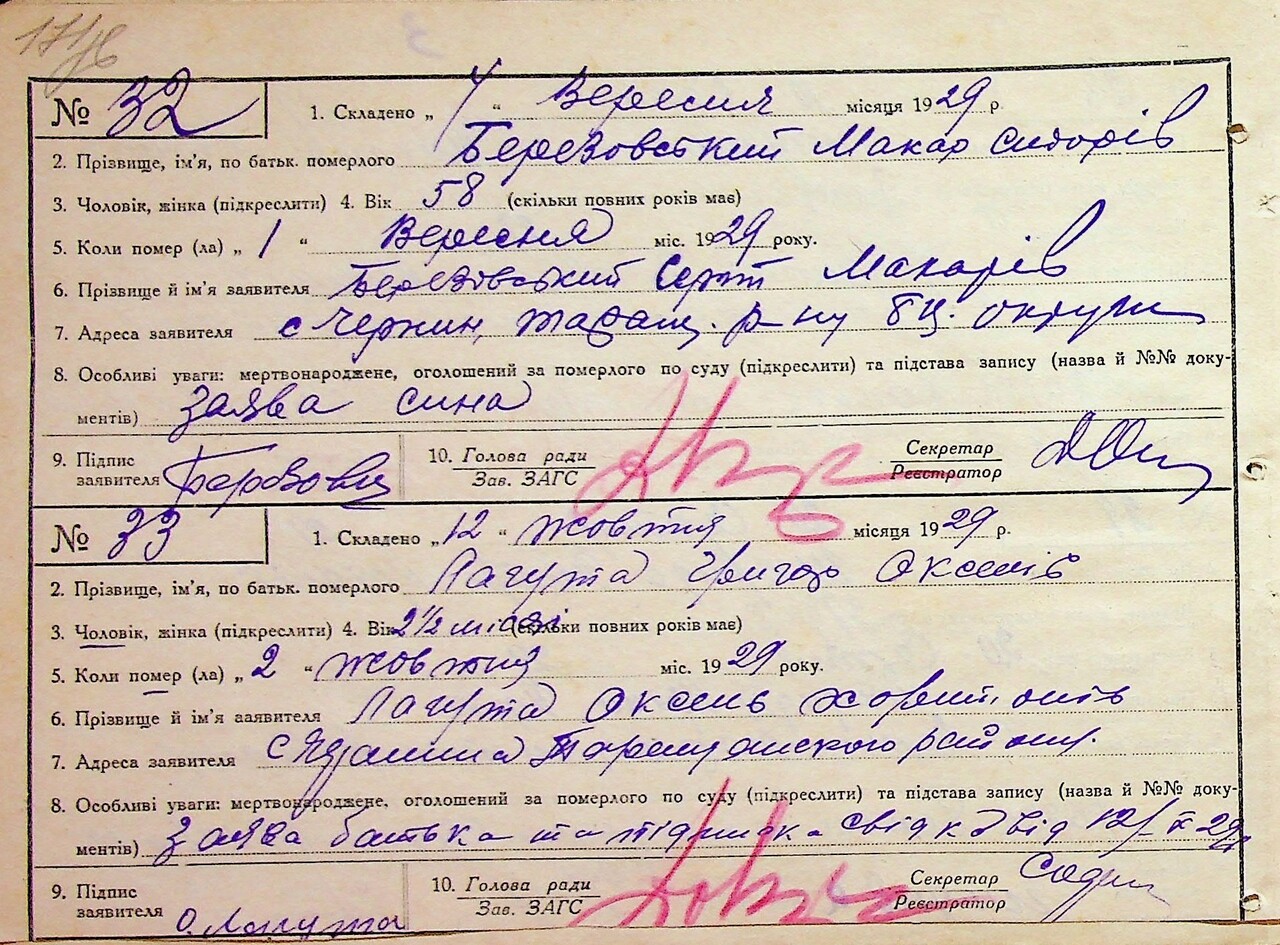 № 32 1. Складено „ 4 “ Вересня місяця 1929 р.
2. Прізвище, ім'я, по батьк. померлого Березовський Макар Сидорів
3. Чоловік, жінка (підкреслити) 4. Вік 58 (скільки повних років має)
5. Коли помер (ла) „ 1 “ Вересня міс. 1929 року.
6. Прізвище й ім'я заявителя Березовський Макарів
7. Адреса заявителя с р-ну БЦ. округи
8. Особливі уваги: мертвонароджене, оголошений за померлого по суду (підкреслити) та підстава запису (назва й №№ доку-
ментів) заява сина
9. Підпис заявителя 10. Голова ради Зав. ЗАГС Секретар Реєстратор
№ 33 1. Складено „ 12 “ жовтня місяця 1929 р.
2. Прізвище, ім'я, по батьк. померлого Лагута Григор Оксенів
3. Чоловік, жінка (підкреслити) 4. Вік 2½ місяці (скільки повних років має)
5. Коли помер (ла) „ 2 “ жовтня міс. 1929 року.
6. Прізвище й ім'я заявителя Лагута Оксень
7. Адреса заявителя с Таращанского району.
8. Особливі уваги: мертвонароджене, оголошений за померлого по суду (підкреслити) та підстава запису (назва й №№ доку-
ментів) Заява батька та свідків від 12/X 29
9. Підпис заявителя О. Лагута 10. Голова ради Зав. ЗАГС Секретар Реєстратор